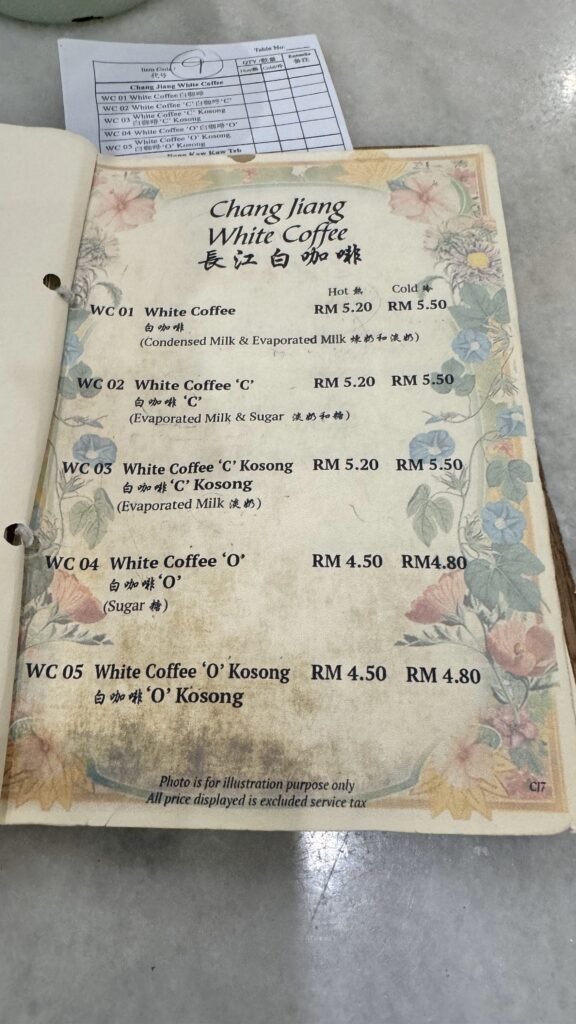 Table No:
Item Code
代号
QTY /数量
Remarks
备注
Hot/热 Cold/冷
9
Chang Jiang White Coffee
WC 01 White Coffee 白咖啡
WC 02 White Coffee 'C' 白咖啡 'C'
WC 03 White Coffee 'C' Kosong
白咖啡 'C' Kosong
WC 04 White Coffee 'O' 白咖啡 'O'
WC 05 White Coffee 'O' Kosong
白咖啡 'O' Kosong
Chang Jiang
White Coffee
長江白咖啡
Hot 熱 Cold 冷
WC 01 White Coffee RM 5.20 RM 5.50
白咖啡
(Condensed Milk & Evaporated Milk 煉奶和淡奶)
WC 02 White Coffee 'C' RM 5.20 RM 5.50
白咖啡 'C'
(Evaporated Milk & Sugar 淡奶和糖)
WC 03 White Coffee 'C' Kosong RM 5.20 RM 5.50
白咖啡 'C' Kosong
(Evaporated Milk 淡奶)
WC 04 White Coffee 'O' RM 4.50 RM4.80
白咖啡 'O'
(Sugar 糖)
WC 05 White Coffee 'O' Kosong RM 4.50 RM 4.80
白咖啡 'O' Kosong
Photo is for illustration purpose only
All price displayed is excluded service tax
C17